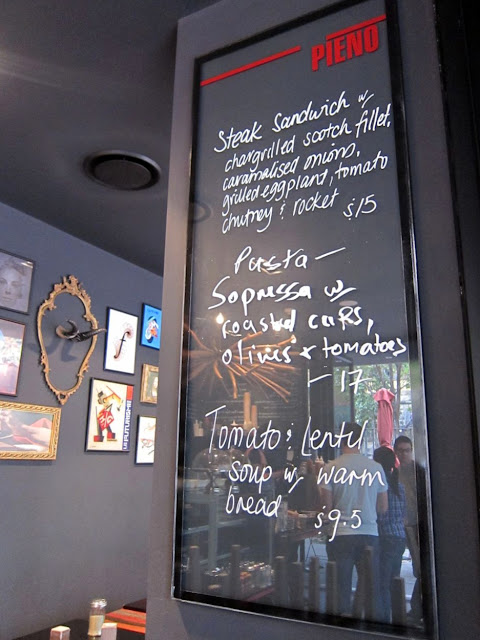 PIENO
Steak Sandwich w/
chargrilled scotch fillet,
caramalised onions,
grilled eggplant, tomato
chutney & rocket $15
Pasta —
Sopressa w/
roasted caps,
olives & tomatoes
17
Tomato & Lentil
soup w/ warm
bread $9.5